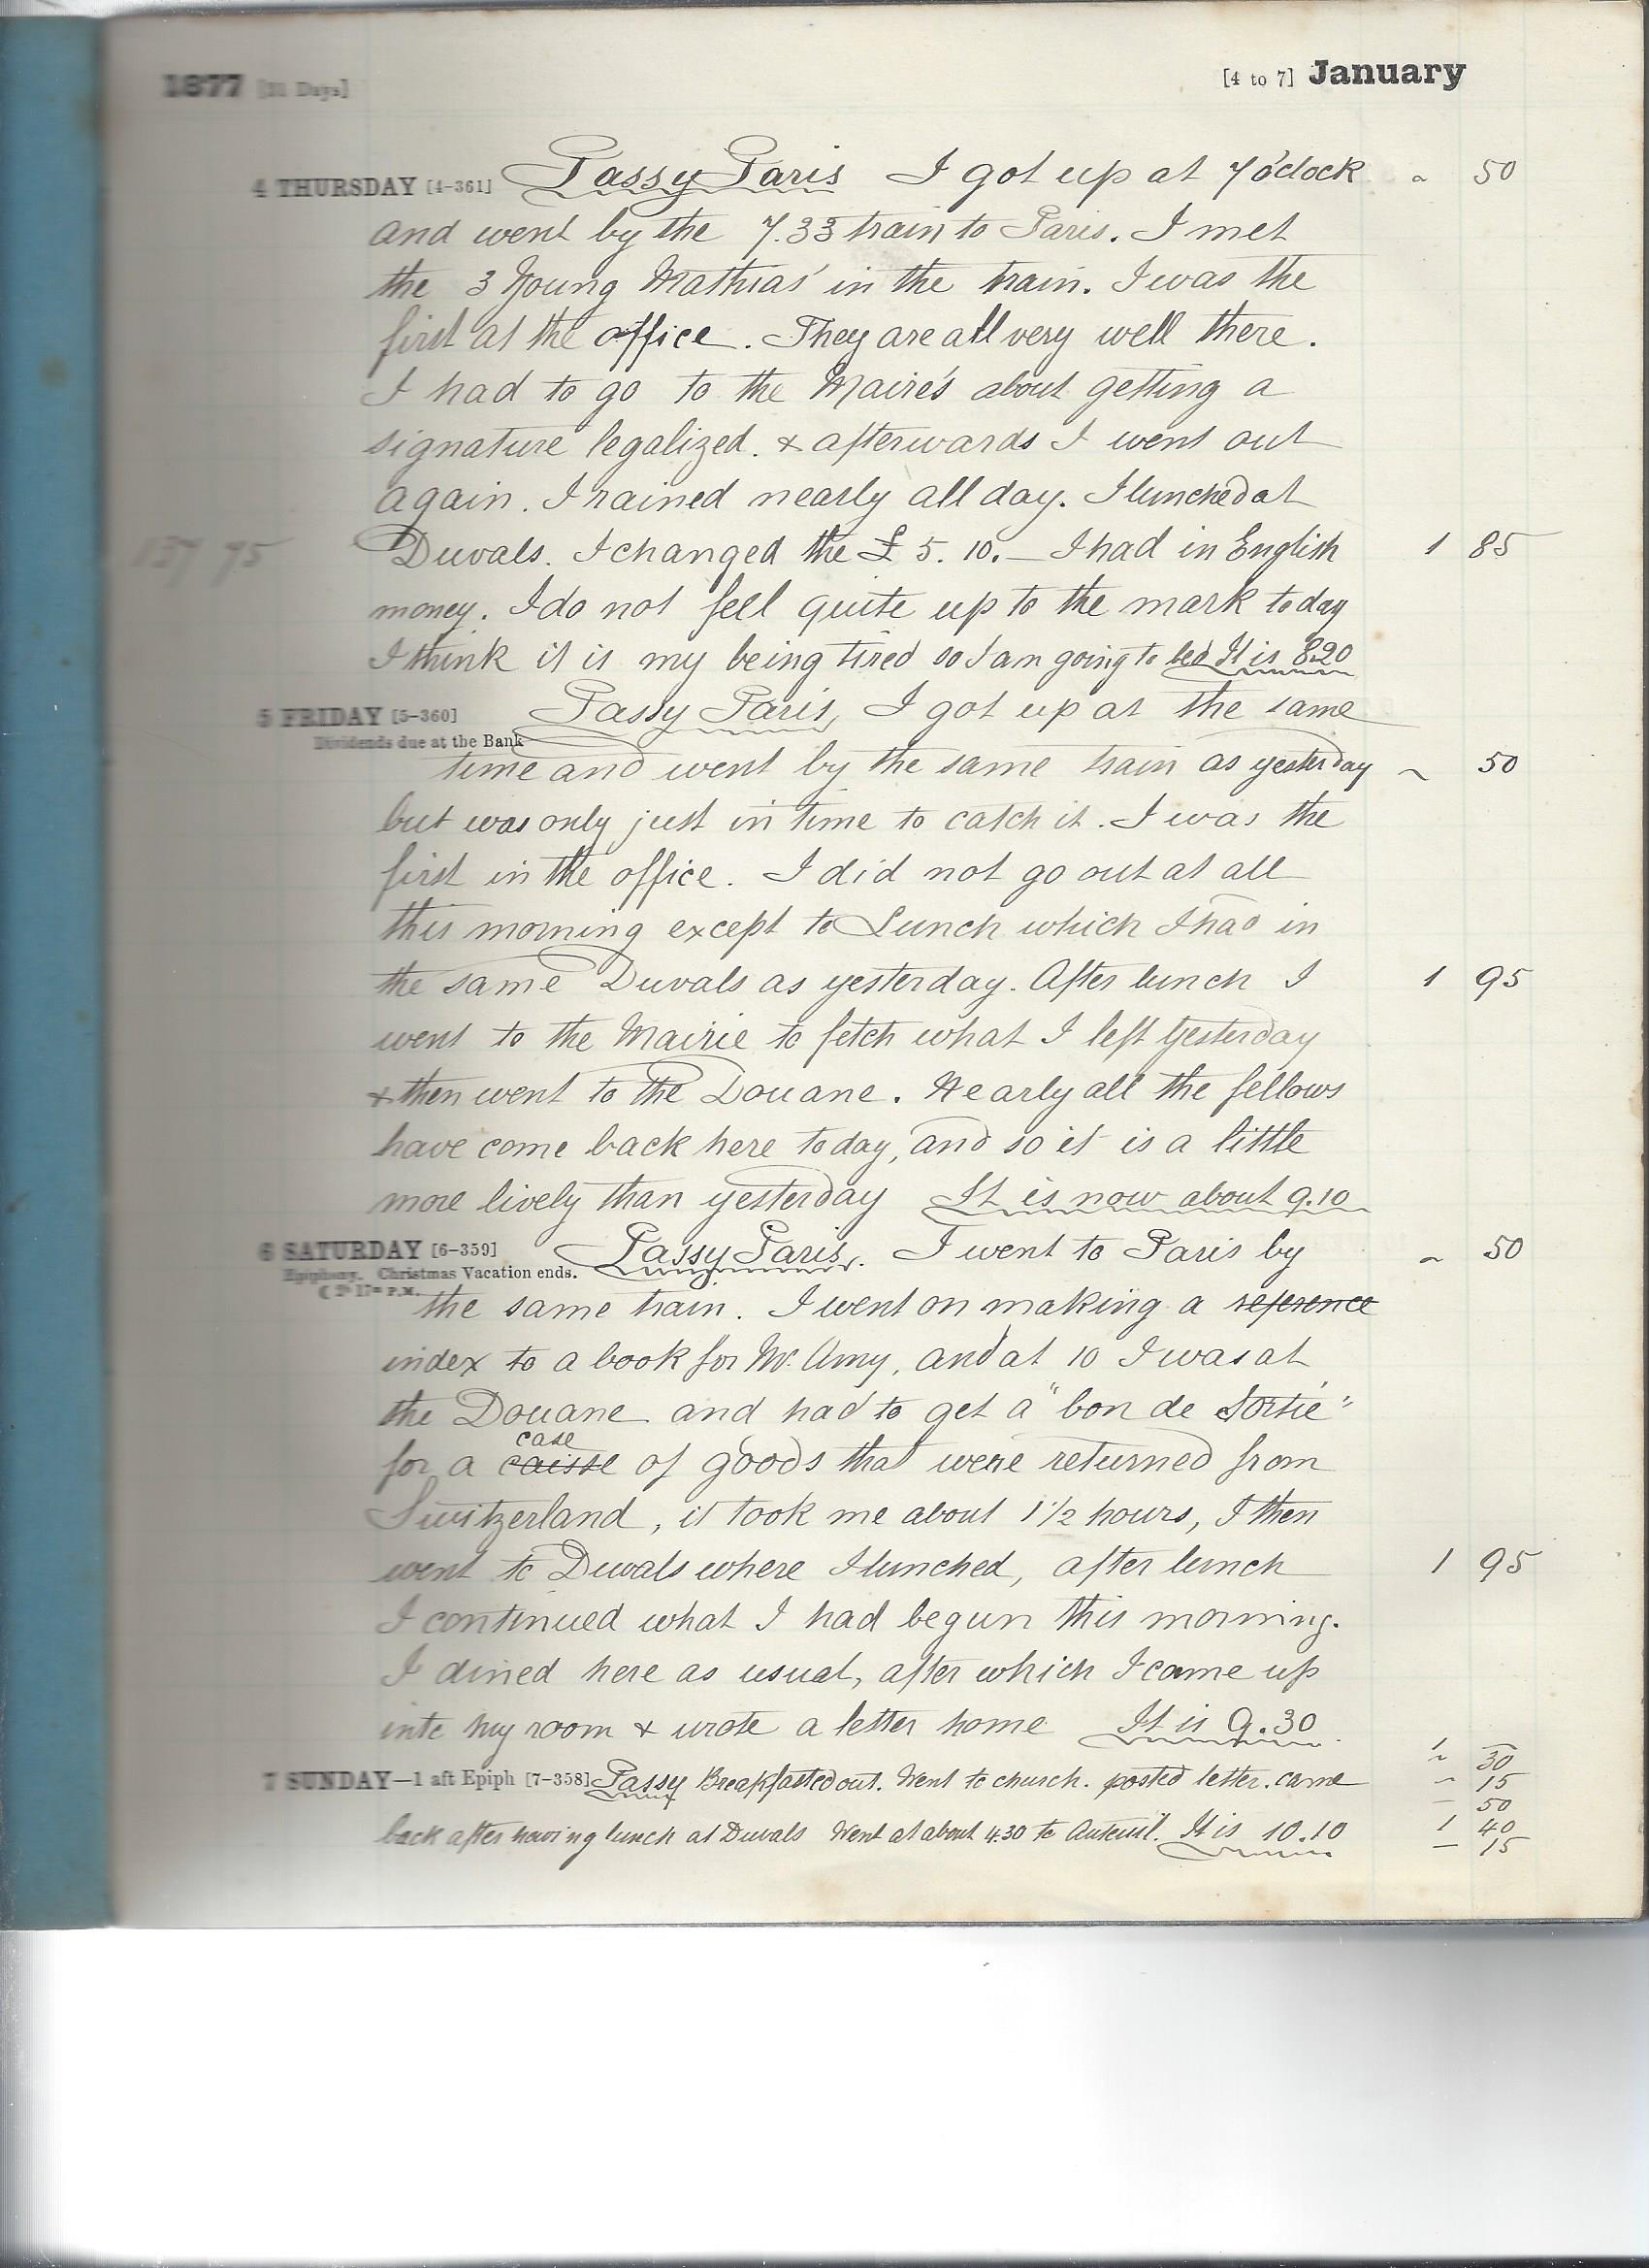 1877 [31 Days] [4 to 7] January
4 THURSDAY [4-361] Passy Paris I got up at 7 o'clock ~ 50
and went by the 7.33 train to Paris. I met
the 3 Young Mathias' in the train. I was the
first at the office. They are all very well there.
I had to go to the Maire's about getting a
signature legalized. & afterwards I went out
again. I rained nearly all day. I lunched at
137 75 Duvals. I changed the £ 5. 10. — I had in English 1 85
money. I do not fell quite up to the mark today
I think it is my being tired so I am going to bed It is 8.20
5 FRIDAY [5-360] Passy Paris, I got up at the same
Dividends due at the Bank
time and went by the same train as yesterday ~ 50
but was only just in time to catch it. I was the
first in the office. I did not go out at all
this morning except to Lunch which I had in
the same Duvals as yesterday. After lunch I 1 95
went to the Mairie to fetch what I left Yesterday
& then went to the Douane. Nearly all the fellows
have come back here today, and so it is a little
more lively than yesterday It is now about 9.10
6 SATURDAY [6-359] Passy Paris. I went to Paris by ~ 50
Epiphany. Christmas Vacation ends.
P.M.
the same train. I went on making a reference
index to a book for Mr. Amy, and at 10 I was at
the Douane and had to get a "bon de Sortie"
case
for a caisse of goods that were returned from
Switzerland, it took me about 1 1/2 hours, I then
went to Duvals where I lunched, after lunch 1 95
I continued what I had begun this morning.
I dined here as usual, after which I came up
into my room & wrote a letter home It is 9.30
1 30
7 SUNDAY—1 aft Epiph [7-358] Passy Breakfasted out. Went to church. posted letter. came ~ 15
— 50
back after having lunch at Duvals Went at about 4.30 to Auteuil. It is 10.10 1 40
— 15